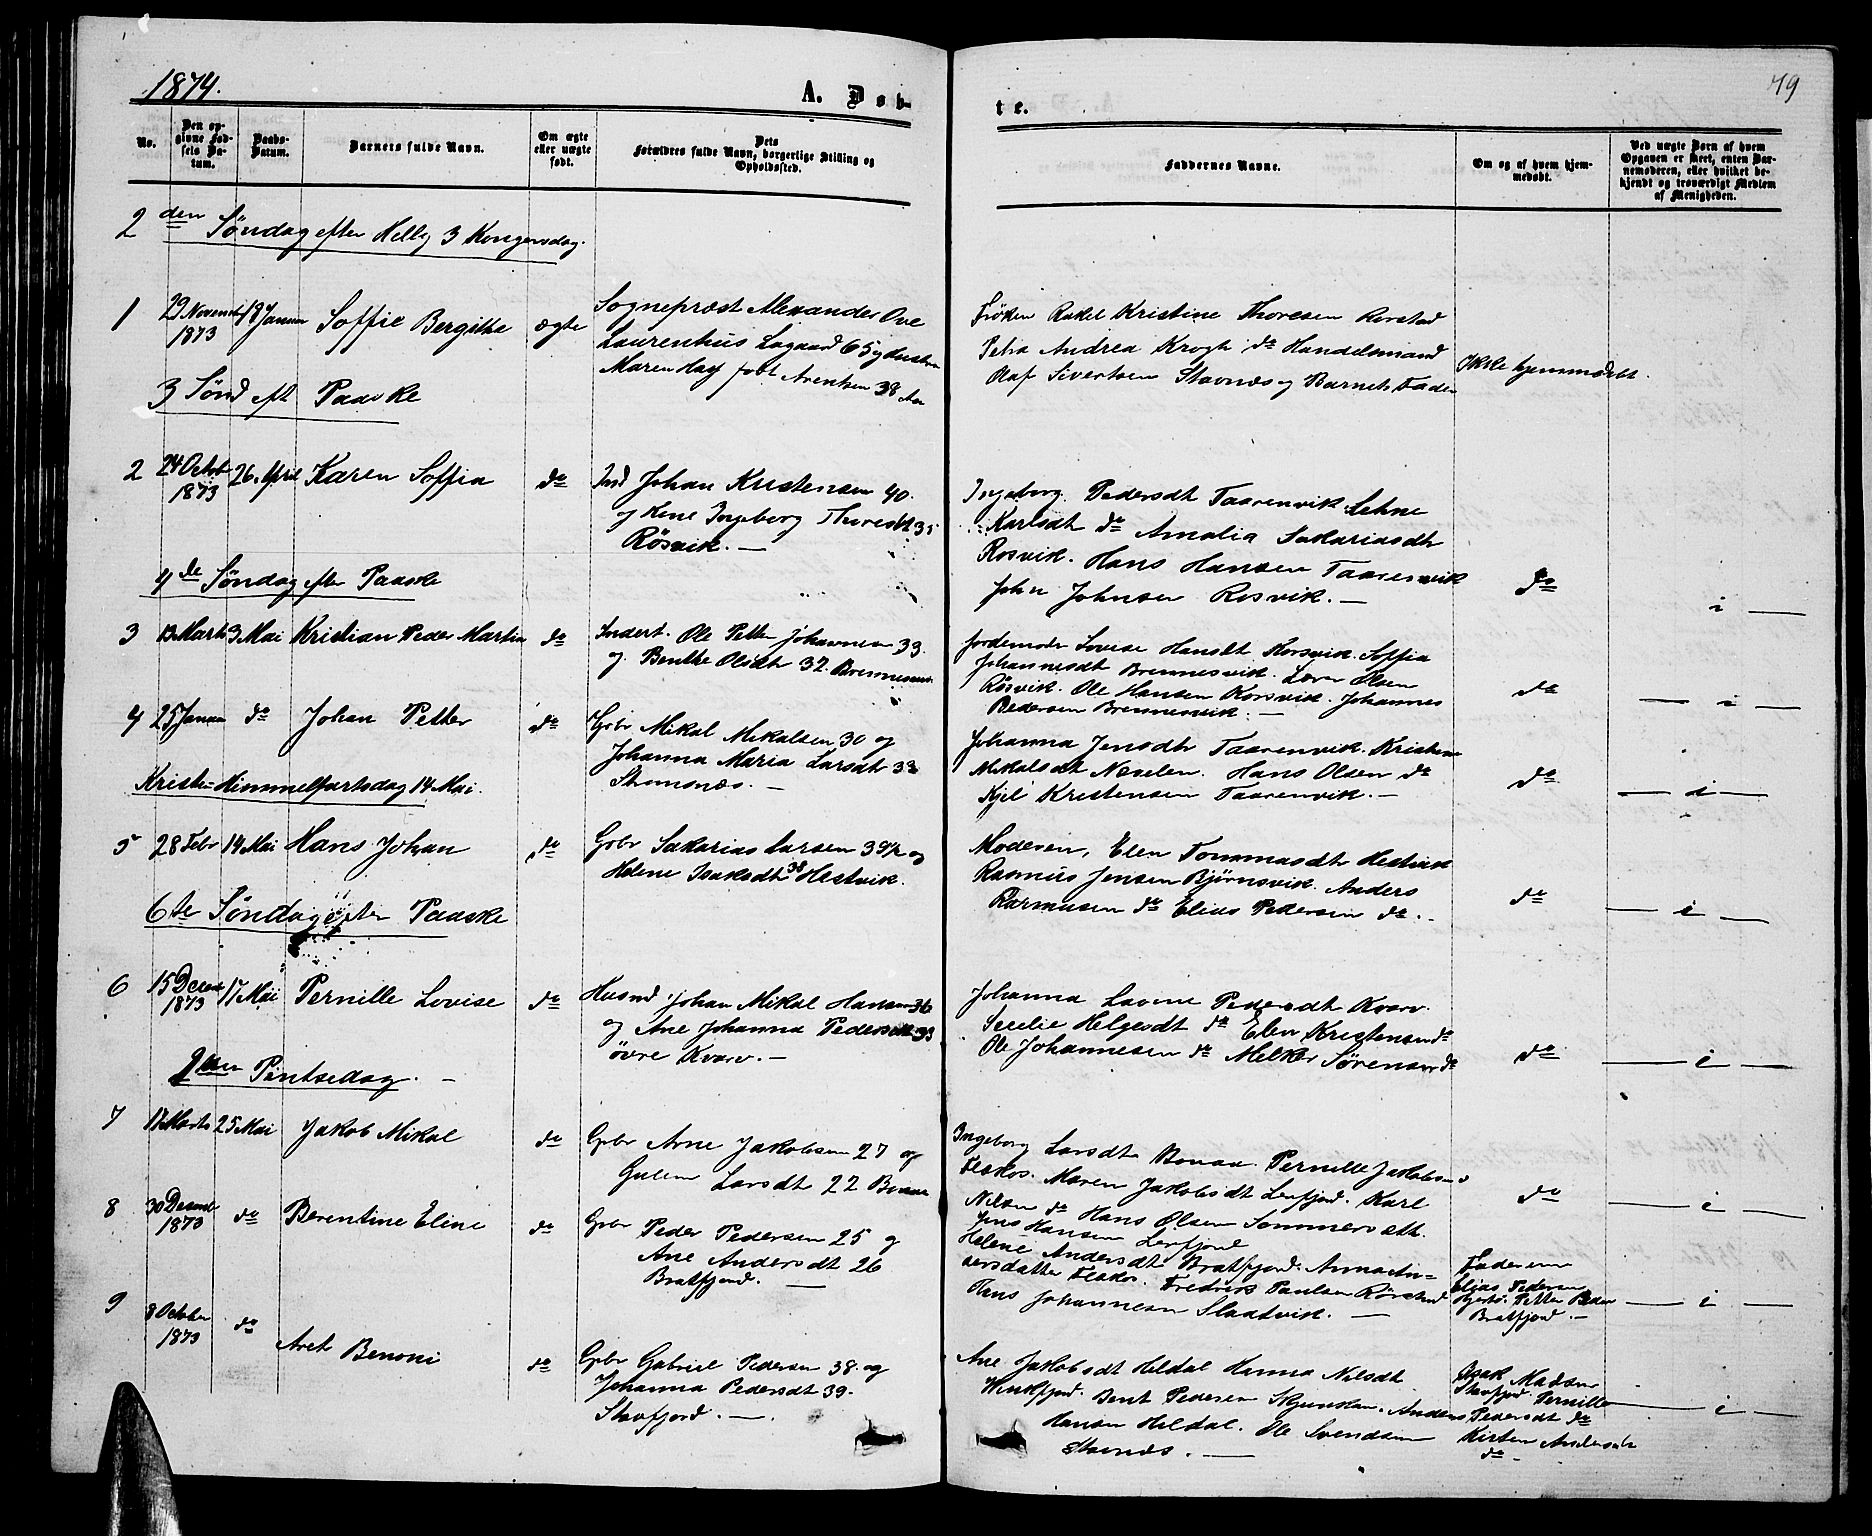 1874.
A. Døb-
te.
79
No.
Den opgivne Fødsels Datum.
Daabs-Datum.
Barnets fulde Navn.
Om ægte eller uægte født.
Dets Forældres fulde Navn, borgerlige Stilling og Opholdssted.
Faddernes Navne.
Om og af hvem hjemmedøbt.
Ved uægte Børn af hvem Opgaven er skeet, enten Barnemoderen, eller hvilket bekjendt og troværdigt Medlem af Menigheden.
2den Søndag efter Hellig 3 Kongersdag.
1 29 Novemb 1873 18 Januar Soffie Bergitte ægte
Sognepræst Alexander Ove
Laurentius
Maren Hay født Arentsen 38 Aar
Frøken Rakel Kristine Thoresen Rørstad
Petra Andrea Krogh do Handelsmand
Olaf Sivertsen Stavnæs og Barnets Fader
Ikke hjemmedøbt.
3 Sønd eft Paaske
2 24 Octob 1873 26 April Karen Soffia do
Ind Johan Kristensen 40.
og Ingeborg Thoresdt 35
Røsvik. —
Ingeborg Pedersdt Taarenvik
Karlsdt do Amalia Sakariasdt
Rosvik. Hans Hansen Taarenvik
John Johnsen Rosvik. —
do
— i —
4de Søndag efter Paaske
3 13 Marts 3 Mai Kristian Peder Martin do
Indert. Ole Petter Johannesen 33.
og Benthe Olsdt 32
Jordemoder Lovise Hansdt Korsvik. Soffia
Johannesdt Brennesvik. Olsen
Røsvik. Ole Hansen Korsvik. Johannes
Pedersen Brennesvik. —
do
— i —
4 25 Januar do Johan Petter do
Gbr Mikal Mikalsen 30 og
Johanna Maria Larsdt 33
Strømsnæs. —
Johanna Jensdt Taarenvik. Kristine
Mikalsdt Hans Olsen do
Kjel Kristensen Taarenvik. —
do
— i —
Kristi-Himmelfartsdag 14 Mai.
5 28 Febr 14 Mai Hans Johan do
Gbr Sakarias Larsen 39½ og
Helene Isaksdt 38 Hestvik.
Moderen, Elen Tommasdt Hestvik
Rasmus Jensen Bjørnsvik. Anders
Rasmusen do Elias Pedersen do. —
do
— i —
6te Søndag efter Paaske
6 15 Decem 1873 17 Mai Pernille Lovise do
Husmd Johan Mikal Hansen 36
og Ane Johanna Pedersdt 33
øvre Kvarv. —
Johanna Lovine Pedersdt Kvarv.
Secelie Helgesdt do Elen Kristensen do
Ole Johannesen do Melkor Sørensen do
do
— i —
2den Pintsedag. —
7 17 Marts 25 Mai Jakob Mikal do
Gbr Arne Jakobsen 27 og
Larsdt 22
Ingeborg Larsdt Pernille Jakobs
Maren Jakobsdt Leirfjord. Karl
Nilsen do Hans Olsen Sommerseth.
Jens Hansen Leirfjord
do
— i —
8 30 Desemb 1873 do Berentine Eline do
Gbr Peder Pedersen 25 og
Ane Andersdt 26
Bratfjord. —
Helene Andersdt Bratfjord. Anna An-
dersdatter Fredrik Paulsen Rørstad
Hans Johannesen Slaatvik. —
Faderen
Elias Pedersen
Petter Peder
Bratfjord. —
— i —
9 8 October 1873 do Aret Benoni do
Gbr Gabriel Pedersen 38. og
Johanna Pedersdt 39.
Stavfjord. —
Ane Jakobsdt Heldal Hanna Nilsdt
Bent Pedersen Anders
Hansen Heldal. Ole Svendsen
Stavnæs. —
Isak Madsen
Stavfjord Pernille
Pedersdt do
Kirsten Andersdt
do
— i —